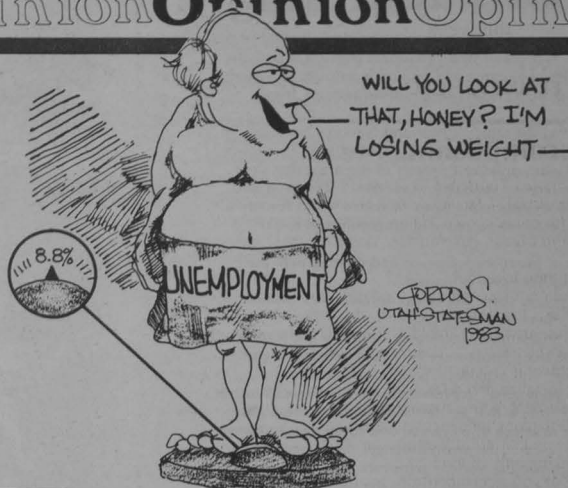 Opinion Opinion Opin
WILL YOU LOOK AT
THAT, HONEY? I'M
LOSING WEIGHT—
8.8%
UNEMPLOYMENT
GORDON S.
UTAH STATESMAN
1983